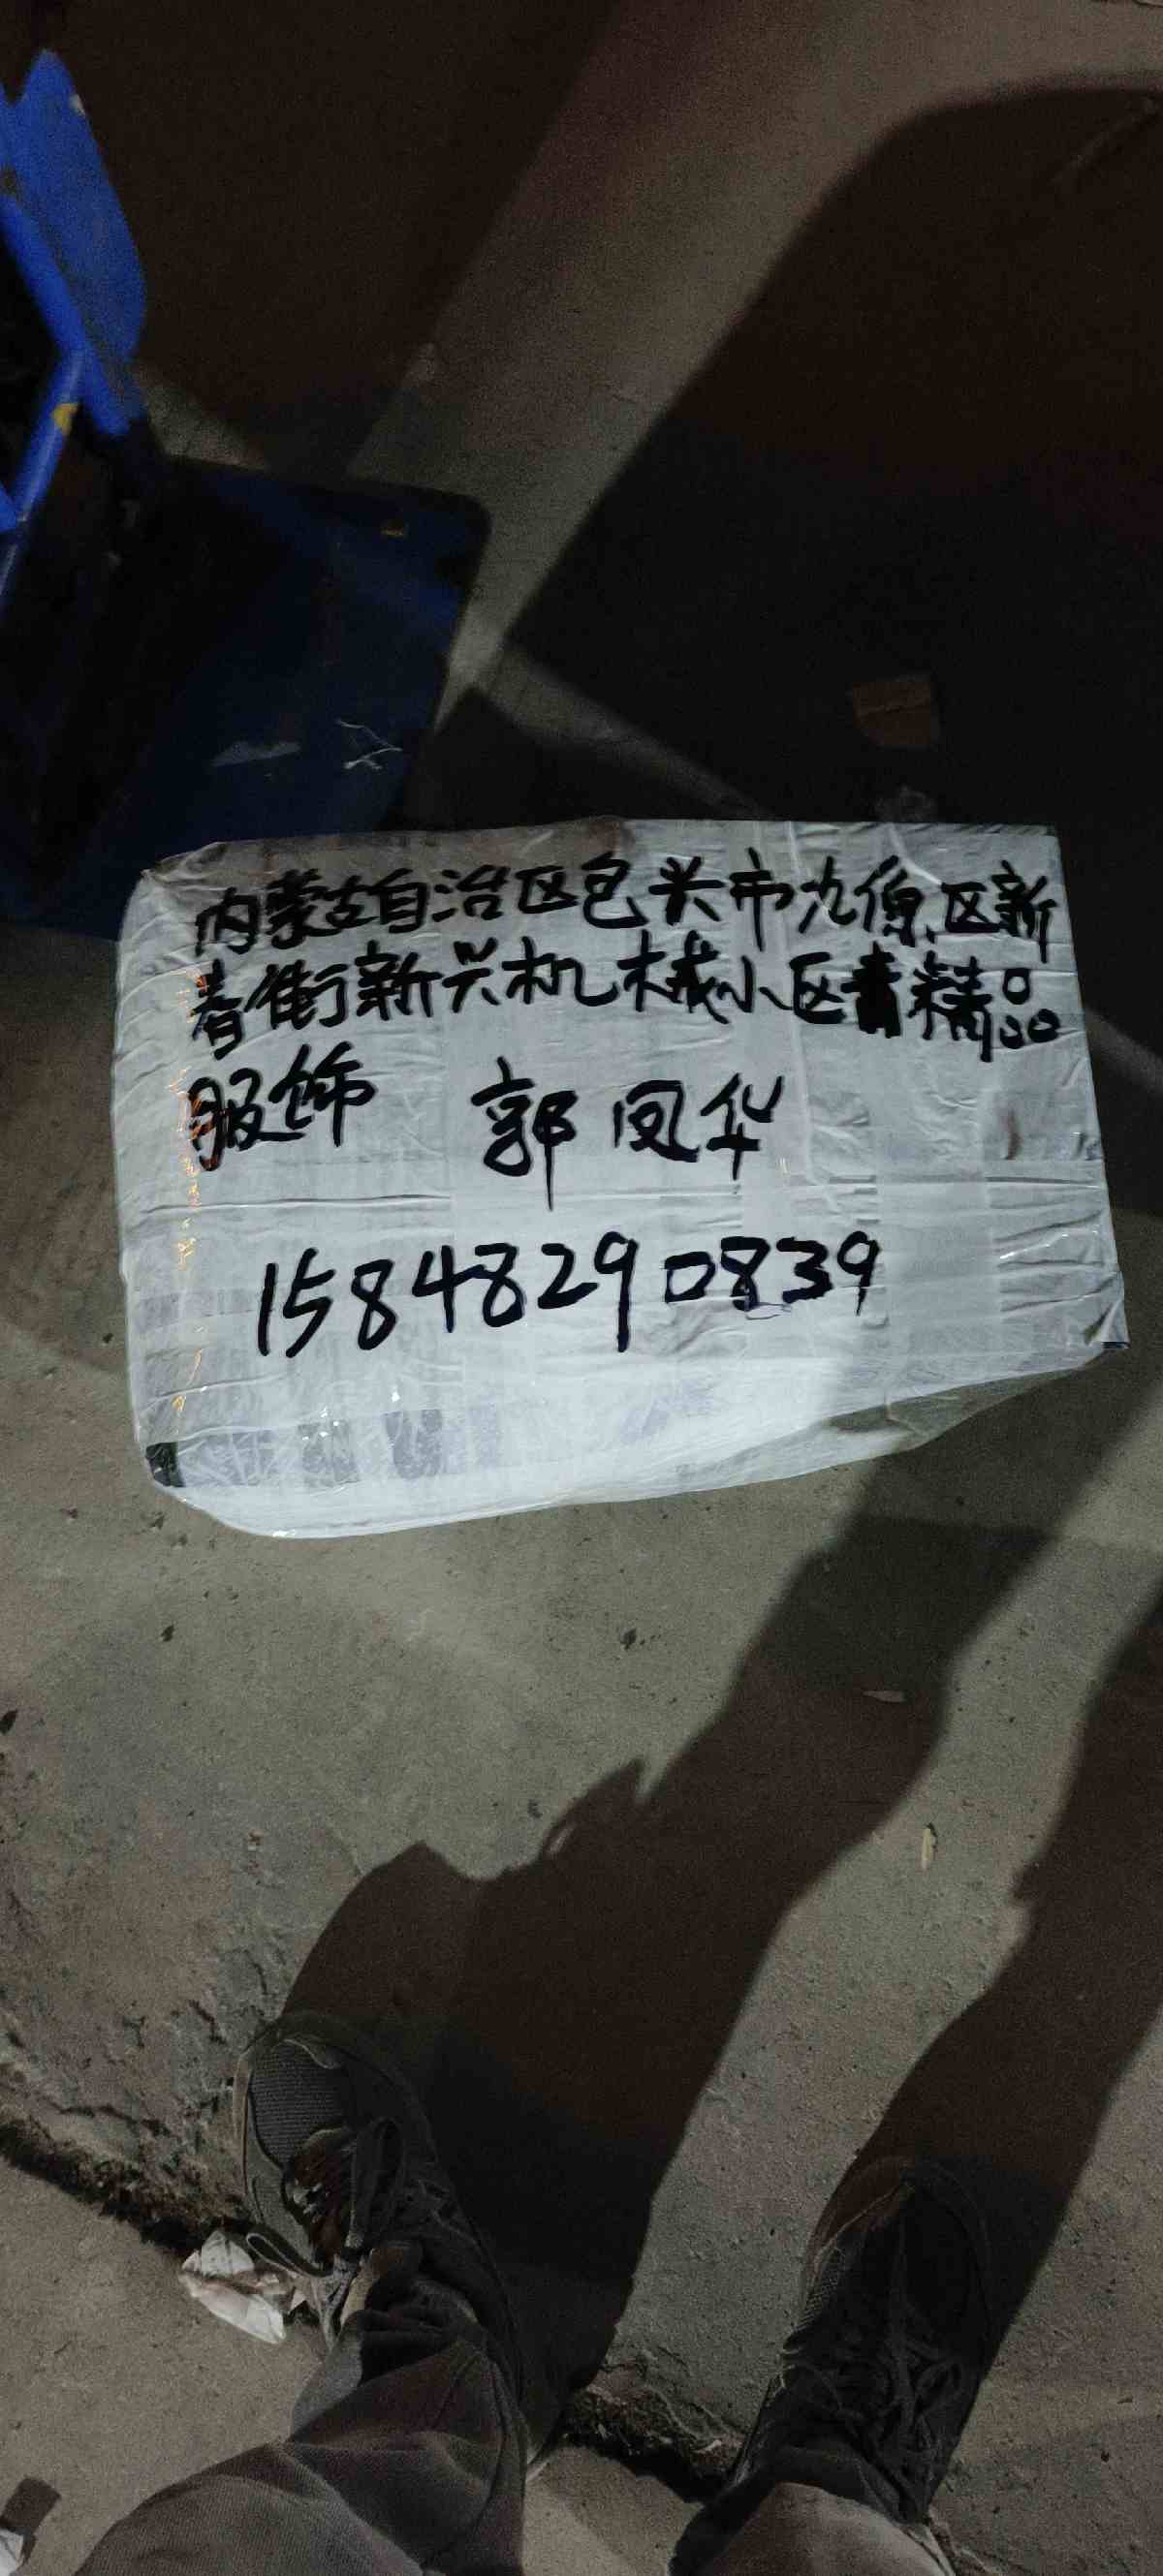 内蒙古自治区包头市九原区新
春街新兴机械小区青精品
服饰 郭凤华
15848290839